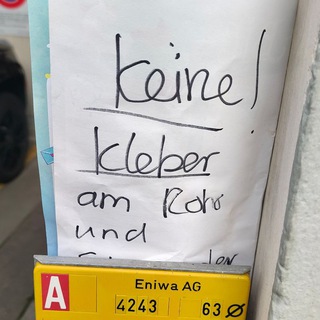 keine!
kleber
am Rohr
und
A
Eniwa AG
4243 63 Ø